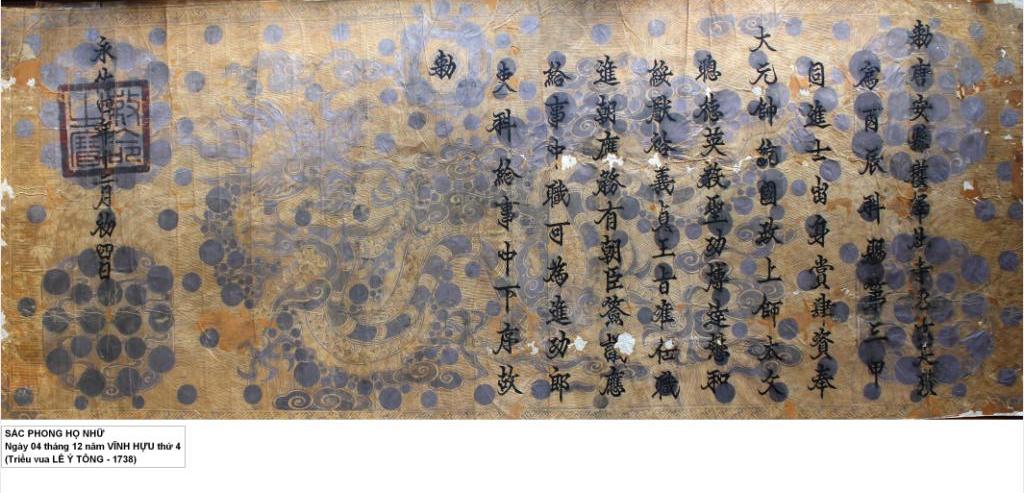 勅唐安縣穫
為丙辰科賜第三甲
同進士出身賞肆資奉
大元帥總國政上師太父
聰德英毅聖功博達慈和
猷裕義貞王旨准仕職
進朝應務有朝臣僉議應
給事中職可為進功郎
吏科給事中下序故
勅
永佑四年十二月初四日
敕命之寶
SẮC PHONG HỌ NHỮ
Ngày 04 tháng 12 năm VĨNH HỰU thứ 4
(Triều vua LÊ Ý TÔNG - 1738)